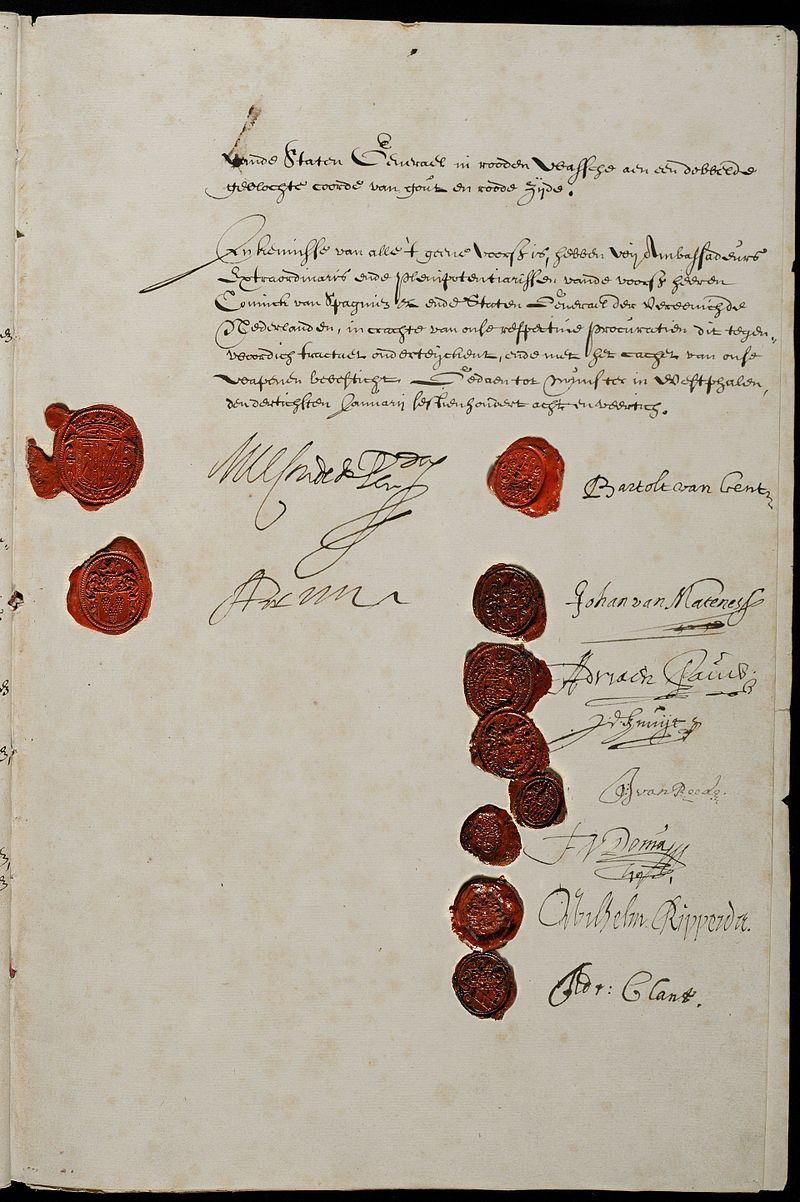 vande Staten Generael in rooden Wassche aen een dobbelde
gevlochte coorde van gout en roode Zijde.
In kennisse van alle 't geene voorsz is, hebben wij Ambassadeurs
Extraordinaris ende Plenipotentiarissen vande voorsz heeren
Coninck van Spagnien ende Staten Generael der Vereenichde
Nederlanden, in crachte van onse respective procuratien dit tegen-
woordich tractaet onderteijckent, ende met het cachet van onse
wapenen bevesticht. Gedaen tot Munster in Westphalen,
den dertichsten Januarij sesthienhondert acht en veertich.
Bartolt van Gent
Johan van Matenesse
Adriaen Pauw
J. d. Knuijt
G. van Reede
F. v. Donia
Wilhelm Ripperda.
Adr: Clant.